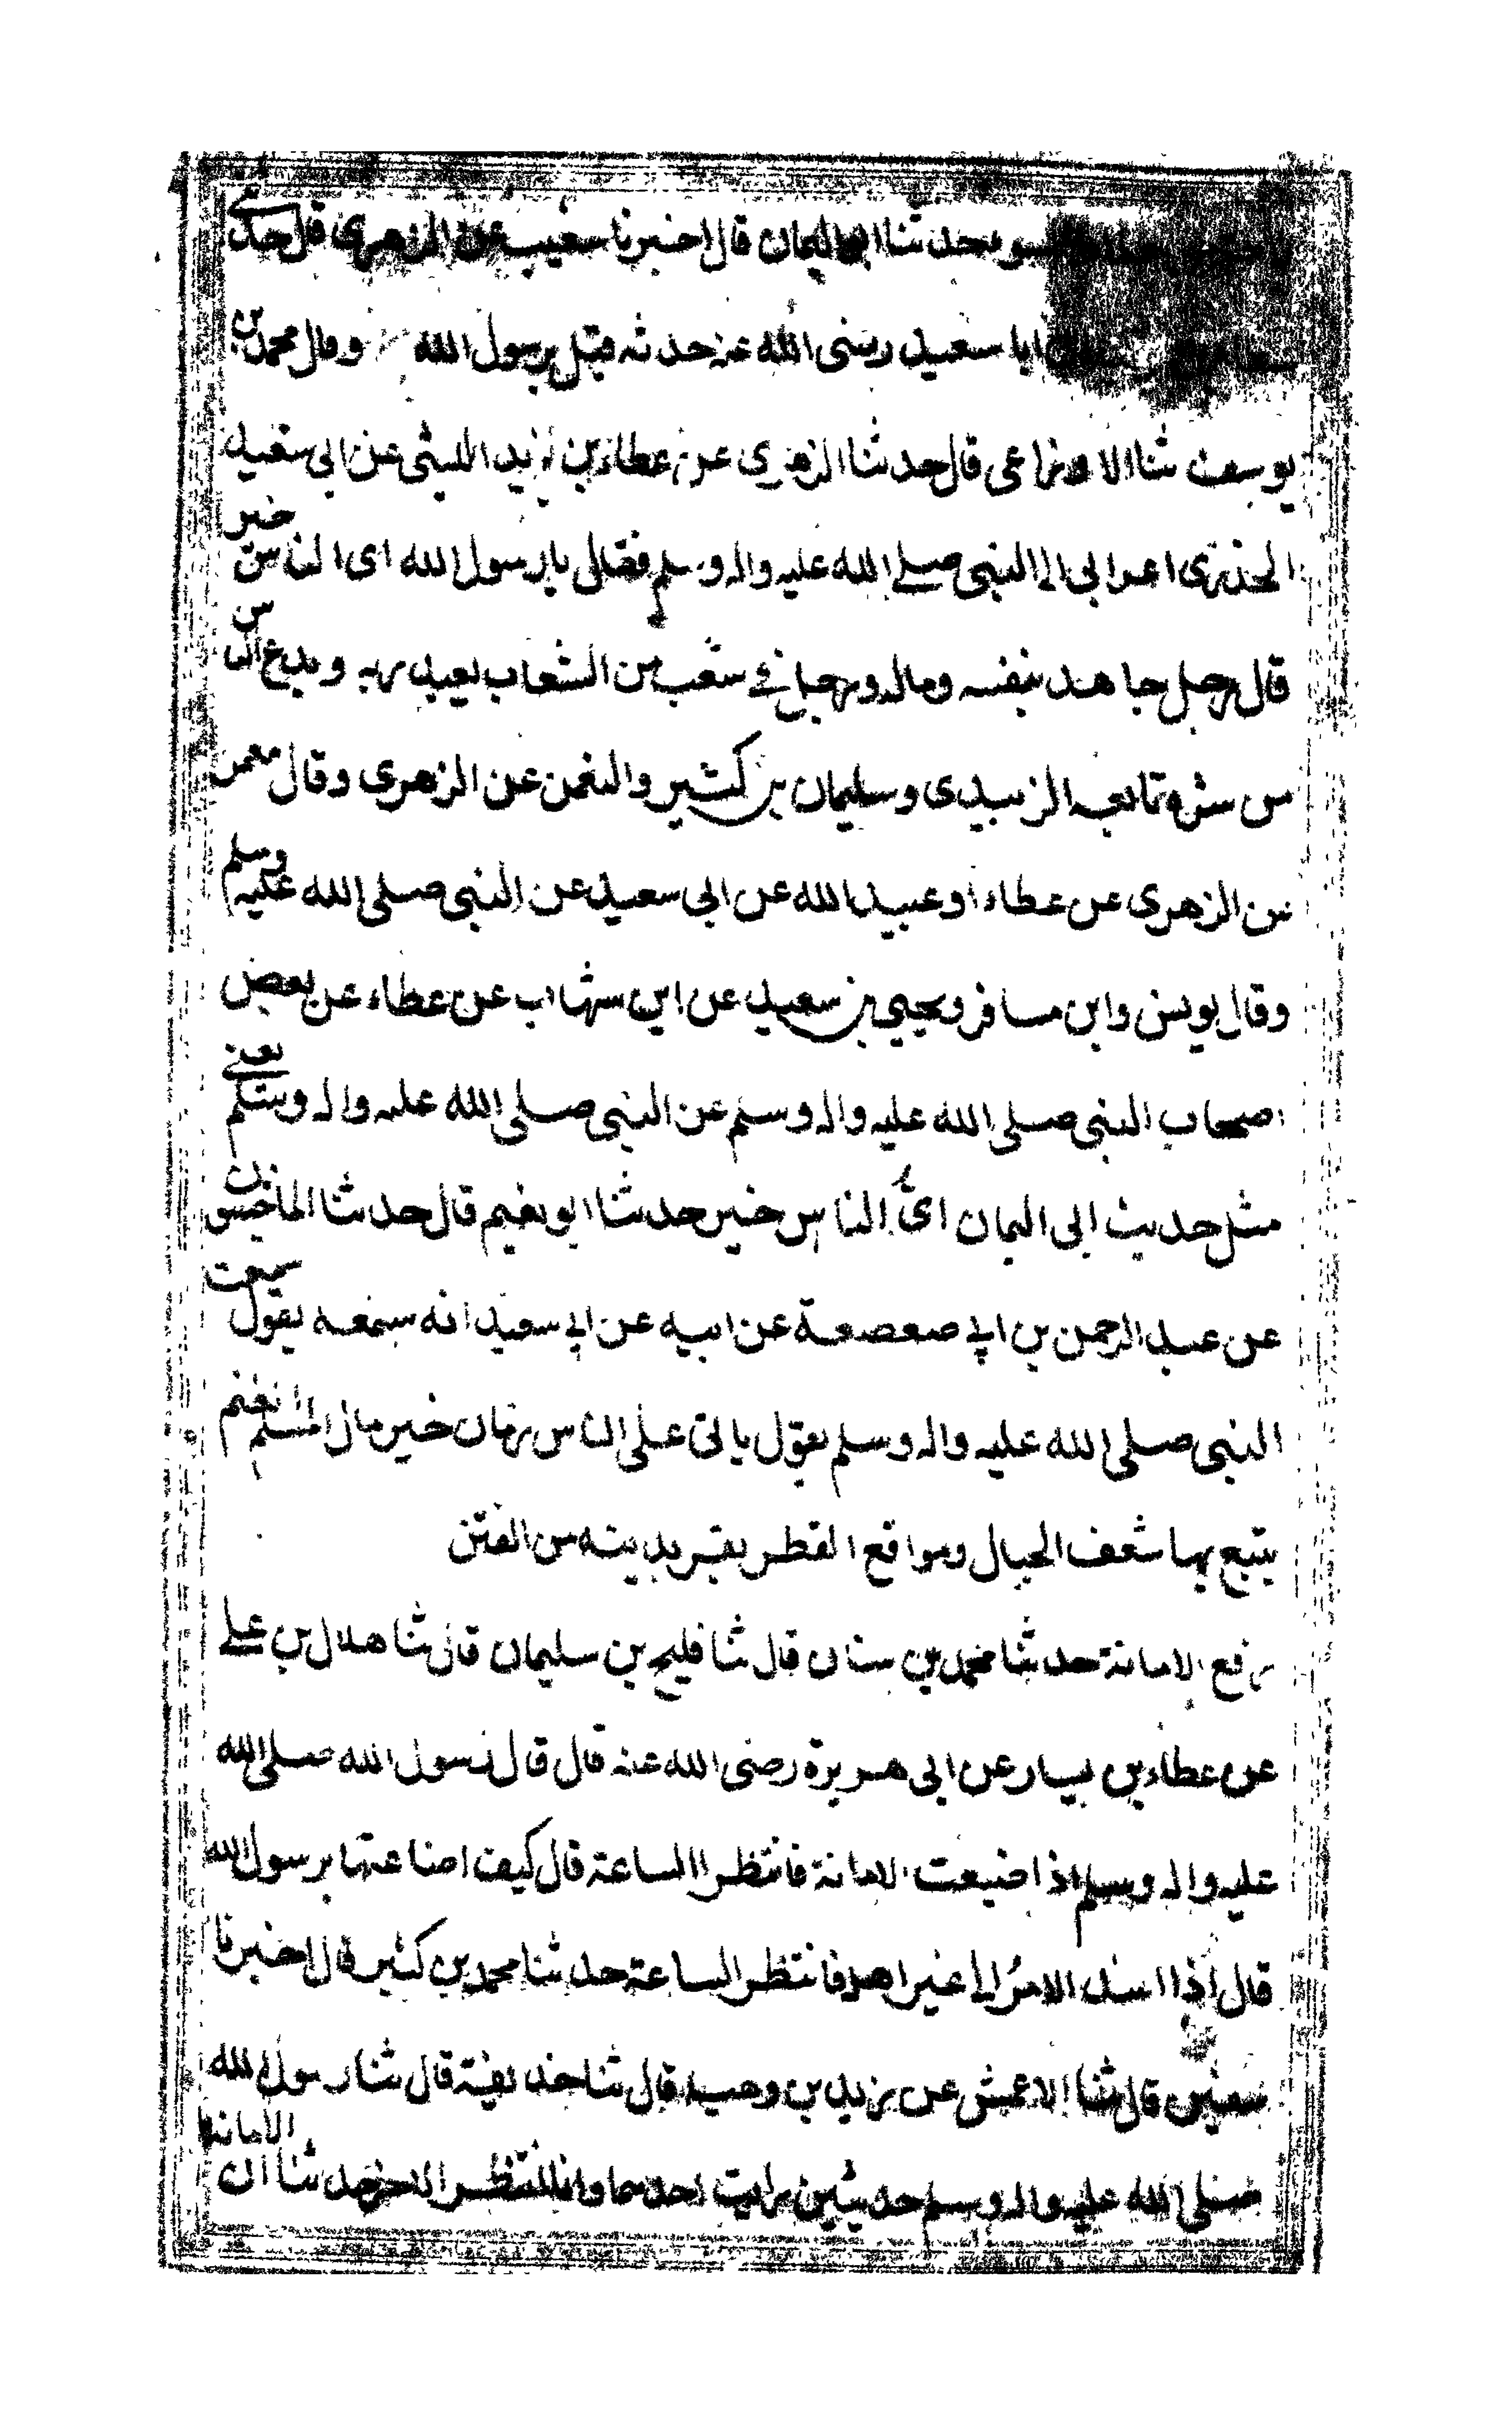 السو محدثنا ابو اليمان قال اخبرنا شعيب عن الزهرى قال حدثنى
ابا سعيد رضى الله عنه حدثه قيل يرسول الله وقال محمد بن
يوسف ثنا الاوزاعى قال حدثنا الزهرى عن عطاء بن يزيد الليثى عن ابى سعيد
الخدرى اعرابى الى النبى صلى الله عليه واله وسلم فقال يارسول الله اى الناس خير
قال رجل جاهد بنفسه وماله ورجل فى شعب من الشعاب يعبد ربه ويدع الناس
من شره تابعه الزبيدى وسليمان بن كثير والنعمن عن الزهرى وقال معمر
عن الزهرى عن عطاء او عبيد الله عن ابى سعيد عن النبى صلى الله عليه وسلم
وقال يونس وابن مسافر ويحيى بن سعيد عن ابن شهاب عن عطاء عن بعض
اصحاب النبى صلى الله عليه واله وسلم عن النبى صلى الله عليه واله وسلم يعنى
مثل حديث ابى اليمان اىّ الناس خير حدثنا ابو نعيم قال حدثنا الماجشون
عن عبد الرحمن بن ابى صعصعة عن ابيه عن ابى سعيد انه سمعه يقول سمعت
النبى صلى الله عليه واله وسلم يقول ياتى على الناس زمان خير مال المسلم الغنم
يتبع بها شعف الجبال ومواقع القطر يفر بدينه من الفتن
رفع الامانة حدثنا محمد بن سنان قال ثنا فليح بن سليمان قال ثنا هلال بن على
عن عطاء بن يسار عن ابى هريرة رضى الله عنه قال قال رسول الله صلى الله
عليه واله وسلم اذا ضيعت الامانة فانتظر الساعة قال كيف اضاعتها يرسول الله
قال اذا اسند الامر الى غير اهله فانتظر الساعة حدثنا محمد بن كثير قال اخبرنا
سفين قال ثنا الاعمش عن يزيد بن وهب قال ثنا حذيفة قال ثنا رسول الله
صلى الله عليه واله وسلم حديثين رايت احدهما وانا انتظر الاخر حدثنا ان الامانة